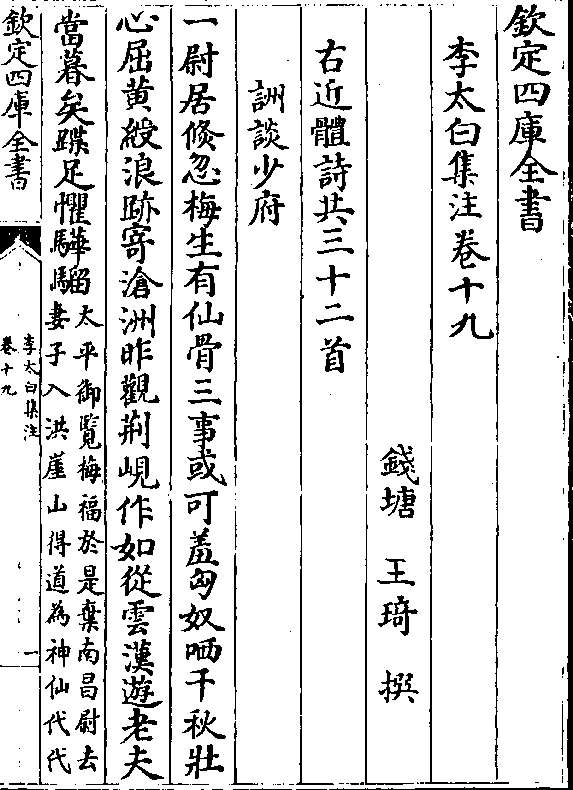 欽定四庫全書
李太白集注卷十九
錢塘 王琦 撰
右近體詩共三十二首
詶談少府
一尉居倐忽梅生有仙骨三事或可羞匈奴哂千秋壯
心屈黄綬浪跡寄滄洲昨觀荆峴作如從雲漢遊老夫
當暮矣蹀足懼驊騮太平御覽梅福於是棄南昌尉去
妻子入洪崖山得道為神仙代代
欽定四庫全書
李太白集注
卷十九
一